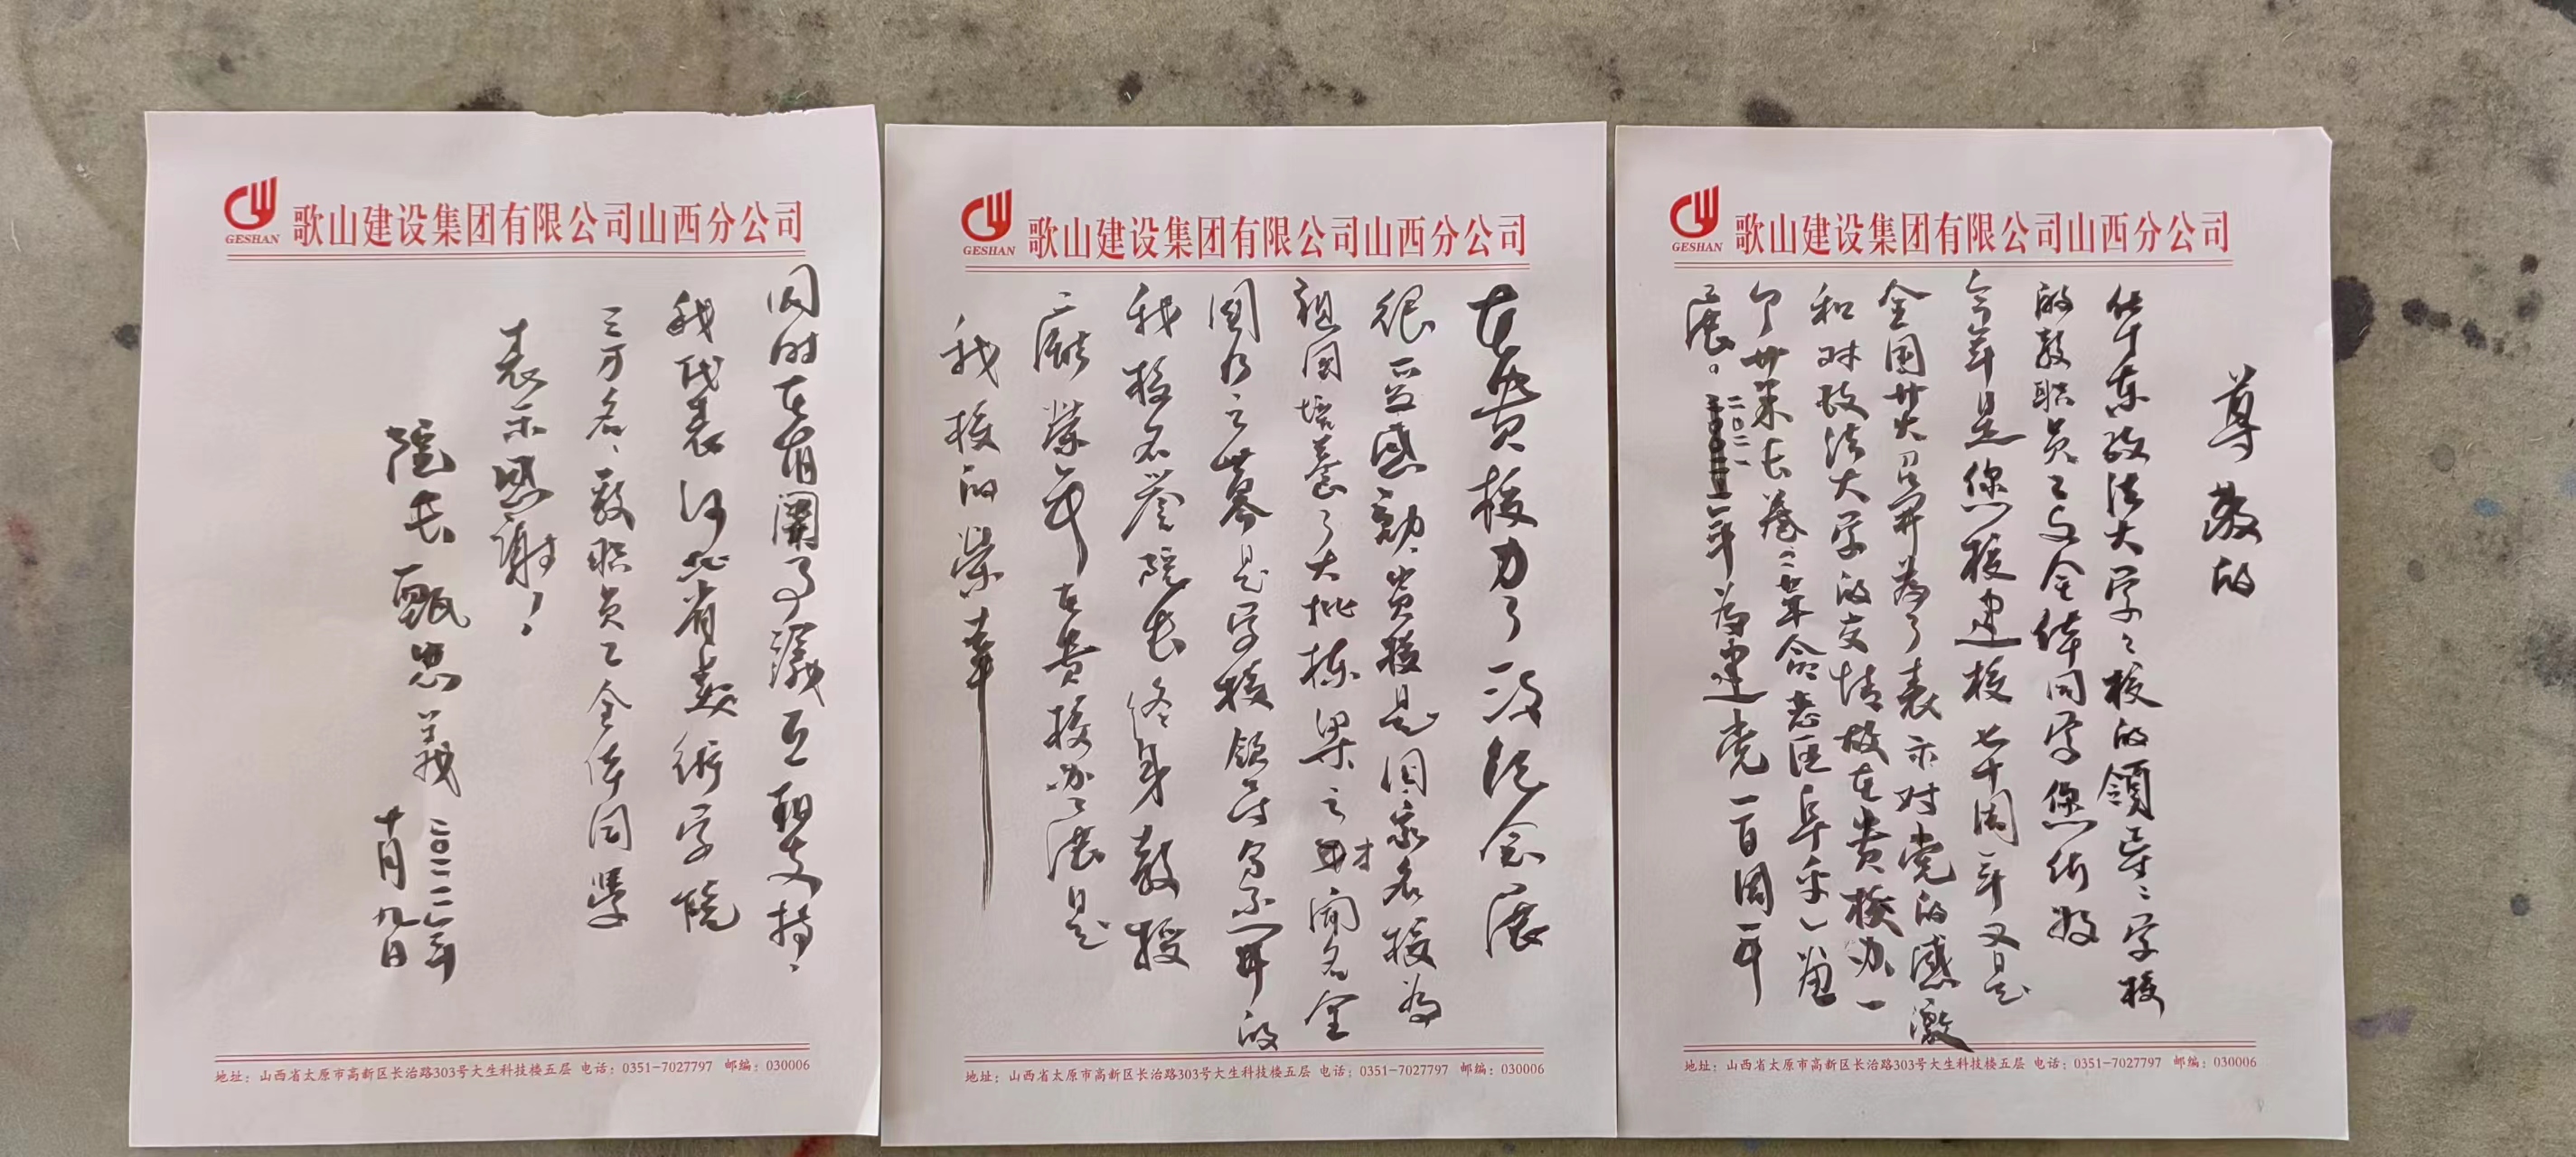 GESHAN
歌山建设集团有限公司山西分公司
尊敬的
华东政法大学学校的领导学校
的教职员工及全体同学您们好
今年是您校建校七十周年又是
全国廿大召开为了表示对党的感激
和对政法大学的友情故在贵校办一
廿米长卷
展。二〇二一年为建党一百周年
地址：山西省太原市高新区长治路303号大生科技楼五层 电话：0351-7027797 邮编：030006
GESHAN
歌山建设集团有限公司山西分公司
在贵校办了一次纪念展
很受感动，贵校是国家名校为
祖国培养了大批栋梁之才闻名全
国是学校领导的
我校名誉院长终身教授
荣幸在贵校办了展是
我校的荣幸
地址：山西省太原市高新区长治路303号大生科技楼五层 电话：0351-7027797 邮编：030006
GESHAN
歌山建设集团有限公司山西分公司
同时在有关事议互助支持，
我代表河北省美术学院
三万名，教职员工全体同学
表示感谢！
院长甄忠义 二〇二二年
十月九日
地址：山西省太原市高新区长治路303号大生科技楼五层 电话：0351-7027797 邮编：030006